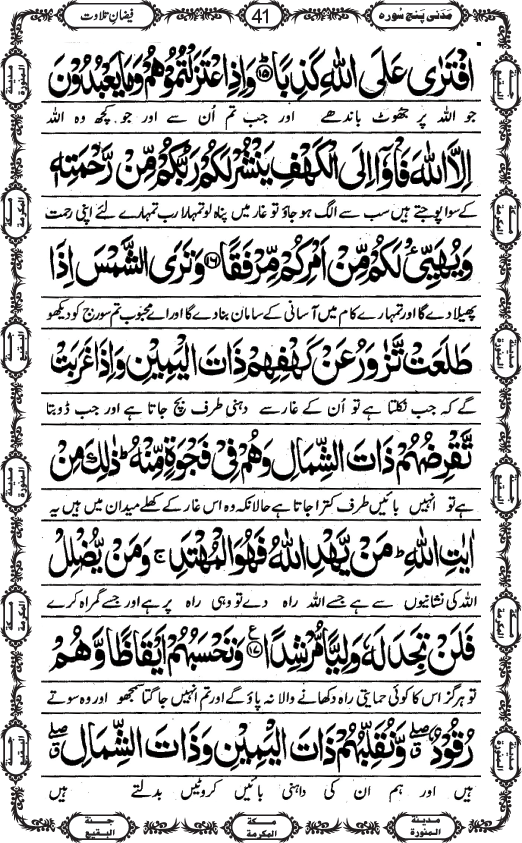 مَدَنی پنج سُورہ
41
فیضانِ تلاوت
افْتَرٰى عَلَى اللّٰهِ كَذِبًاؕ(۱۵) وَ اِذِ اعْتَزَلْتُمُوْهُمْ وَ مَا یَعْبُدُوْنَ
جو اللہ پر جھوٹ باندھے اور جب تم اُن سے اور جو کچھ وہ اللہ
اِلَّا اللّٰهَ فَاْوٗۤا اِلَى الْكَهْفِ یَنْشُرْ لَكُمْ رَبُّكُمْ مِّنْ رَّحْمَتِهٖ
کے سوا پوجتے ہیں سب سے الگ ہو جاؤ تو غار میں پناہ لو تمہارا رب تمہارے لئے اپنی رحمت
وَ یُهَیِّئْ لَكُمْ مِّنْ اَمْرِكُمْ مِّرْفَقًا(۱۶) وَ تَرَى الشَّمْسَ اِذَا
پھیلا دے گا اور تمہارے کام میں آسانی کے سامان بنا دے گا اور اے محبوب تم سورج کو دیکھو
طَلَعَتْ تَّزٰوَرُ عَنْ كَهْفِهِمْ ذَاتَ الْیَمِیْنِ وَ اِذَا غَرَبَتْ
گے کہ جب نکلتا ہے تو اُن کے غار سے دہنی طرف بچ جاتا ہے اور جب ڈوبتا
تَّقْرِضُهُمْ ذَاتَ الشِّمَالِ وَ هُمْ فِیْ فَجْوَةٍ مِّنْهُؕ ذٰلِكَ مِنْ
ہے تو انہیں بائیں طرف کترا جاتا ہے حالانکہ وہ اس غار کے کھلے میدان میں ہیں یہ
اٰیٰتِ اللّٰهِؕ مَنْ یَّهْدِ اللّٰهُ فَهُوَ الْمُهْتَدِۚ وَ مَنْ یُّضْلِلْ
اللہ کی نشانیوں سے ہے جسے اللہ راہ دے تو وہی راہ پر ہے اور جسے گمراہ کرے
فَلَنْ تَجِدَ لَهٗ وَلِیًّا مُّرْشِدًا۠(۱۷) وَ تَحْسَبُهُمْ اَیْقَاظًا وَّ هُمْ
تو ہرگز اس کا کوئی حمایتی راہ دکھانے والا نہ پاؤ گے اور تم انہیں جاگتا سمجھو اور وہ سوتے
رُقُوْدٌ ﳓ وَّ نُقَلِّبُهُمْ ذَاتَ الْیَمِیْنِ وَ ذَاتَ الشِّمَالِ ﳓ
ہیں اور ہم ان کی داہنی بائیں کروٹیں بدلتے ہیں
مدینۃ المنورۃ
مکۃ المکرمۃ
جنۃ البقیع